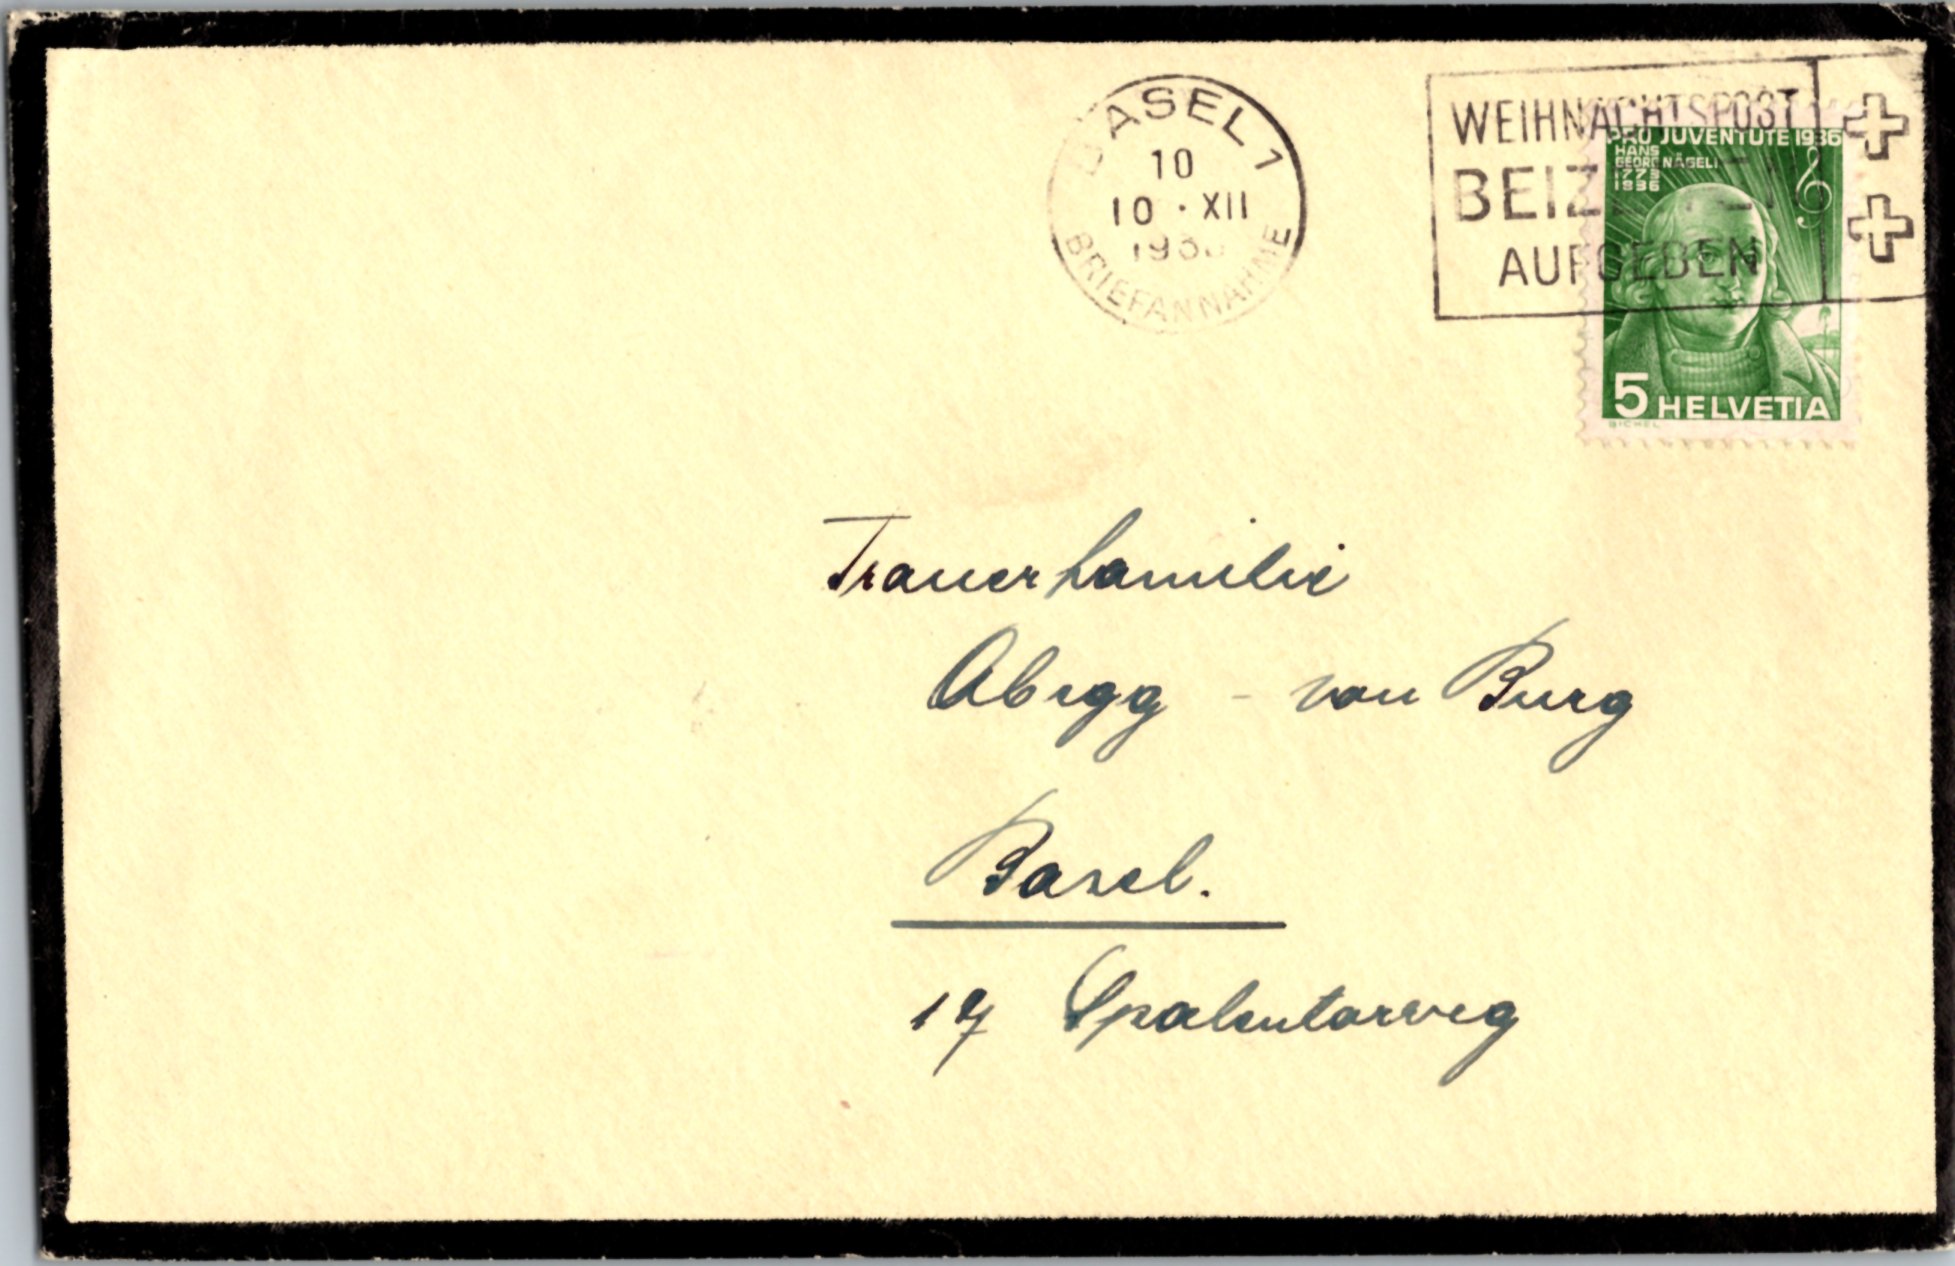 BASEL 1
10
10 · XII
BRIEFANNAHME
WEIHNACHTSPOST
BEIZEITEN
AUFGEBEN
PRO JUVENTUTE 1936
HANS
GEORG NÄGELI
1773
1836
5 HELVETIA
BICKEL
Trauerfamilie
Abegg - von Burg
Basel.
17 Spalentorweg